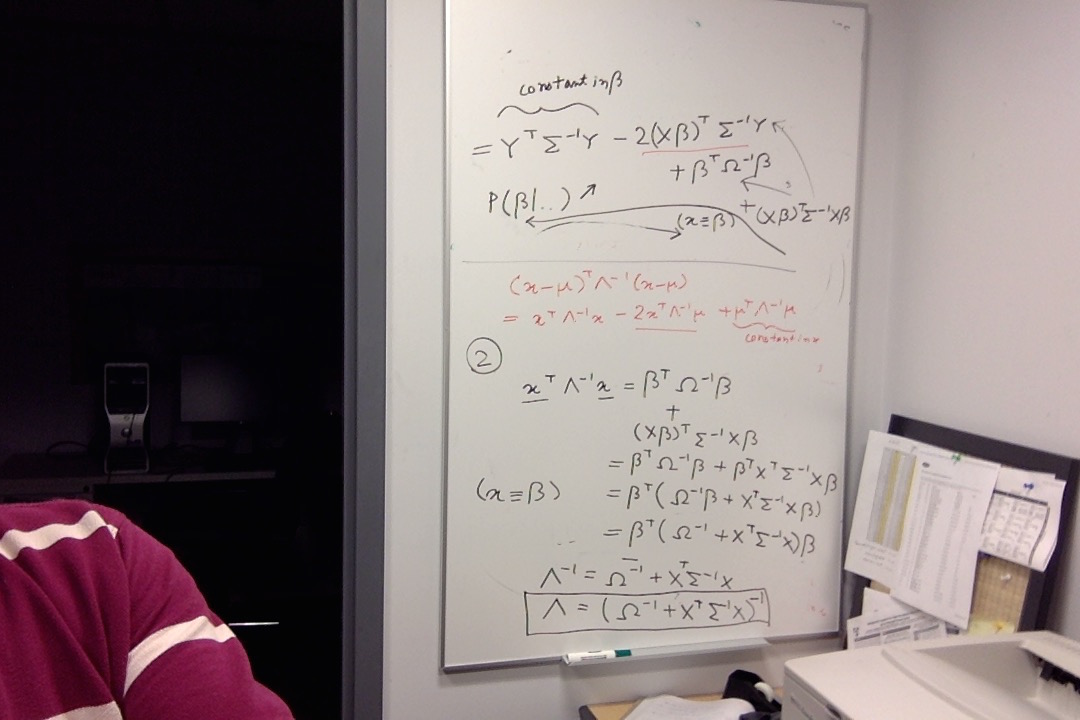 constant in β
= Yᵀ Σ⁻¹Y − 2(Xβ)ᵀ Σ⁻¹Y
+ βᵀΩ⁻¹β
P(β|..)
+ (Xβ)ᵀΣ⁻¹Xβ
(x≡β)
(x−μ)ᵀΛ⁻¹(x−μ)
= xᵀΛ⁻¹x − 2xᵀΛ⁻¹μ + μᵀΛ⁻¹μ
constant in x
2
xᵀΛ⁻¹x = βᵀΩ⁻¹β
+
(Xβ)ᵀΣ⁻¹Xβ
= βᵀΩ⁻¹β + βᵀXᵀΣ⁻¹Xβ
(x≡β) = βᵀ(Ω⁻¹β + XᵀΣ⁻¹Xβ)
= βᵀ(Ω⁻¹ + XᵀΣ⁻¹X)β
Λ⁻¹ = Ω⁻¹ + XᵀΣ⁻¹X
Λ = (Ω⁻¹ + XᵀΣ⁻¹X)⁻¹